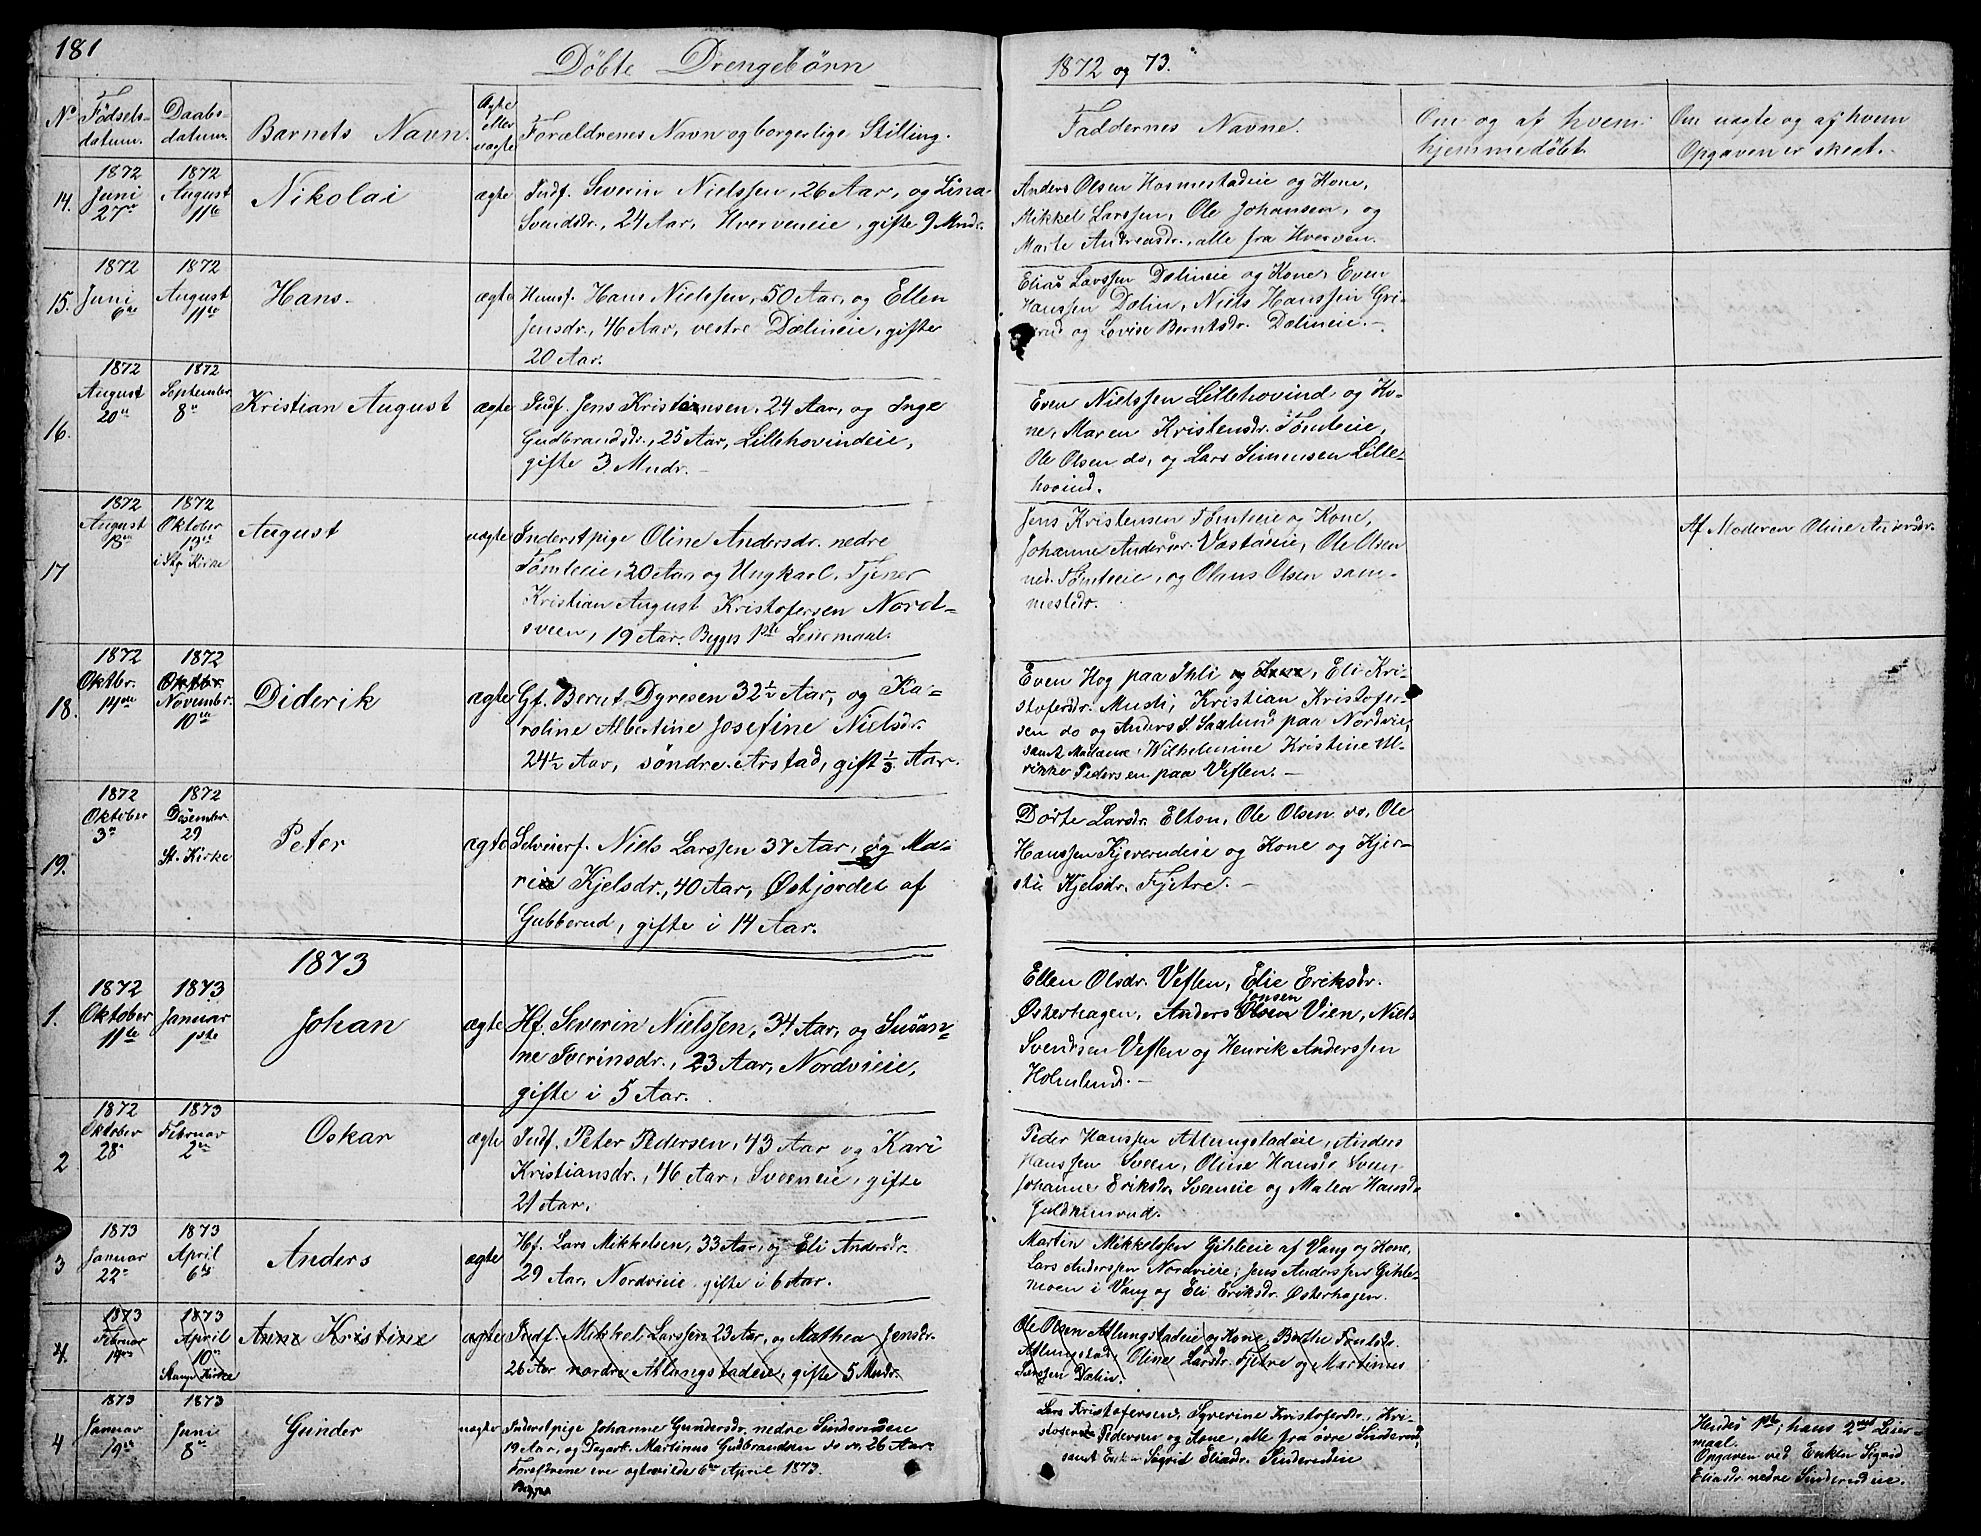 181
Döbte Drengebörn
1872 og 73.
No Födselsdatum. Daabsdatum. Barnets Navn. Ægte eller uægte Forældrenes Navn og borgerlige Stilling.
Faddernes Navne. Om og af hvem hjemmedöbt Om uægte og af hvem Opgaven er skeet.
14. 1872 Juni 27de 1872 August 11te Nikolai ægte Indf. Severin Nielssen, 26 Aar, og Lina
Svendsdr., 24 Aar, Hverveneie, gifte 9 Mndr.
Anders Olsen Hosmestadeie og Kone,
Mikkel Larssen, Ole Johansen, og
Marte Andreasdr., alle fra Hverven.
15. 1872 Juni 6te 1872 August 11te Hans. ægte Husmf. Hans Nielssen, 50 Aar, og Ellen
Jensdr., 46 Aar, vestre Dælineie, gifte
20 Aar.
Elias Larssen Dælineie og Kone, Even
Hanssen Dælin, Niels Hanssen Gri-
og Lovise Berntsdr. Dælineie.
16. 1872 August 20de 1872 September 8de Kristian August ægte Indf. Jens Kristiansen, 24 Aar, og Inge
Gudbrandsdr., 25 Aar, Lillehovindeie,
gifte 3 Mndr.
Even Nielssen Lillehovind, og Ko-
ne, Maren Kristensdr. Tömteeie,
Ole Olsen do, og Lars Simensen Lille-
hovind.
17 1872 August 18de 1872 Oktober 13de i Stg Kirke August uægte Inderstpige Oline Andersdr. nedre
Tömteeie, 20 Aar, og Ungkarl, Tjener
Kristian August Kristofersen Nord-
sveen, 19 Aar. Begges 1ste Leiermaal.
Jens Kristensen Tömteeie og Kone,
Johanne Andersdr. Vestaneie, Ole Olsen
ned. Tömteeie, og Olaus Olsen sam-
mestedr.
Af Moderen Oline Andersdr.
18. 1872 Oktbr. 14de 1872 Oktbr. Novembr. 10de Diderik ægte Gf. Bernt Dyresen 32½ Aar, og Ka-
roline Albertine Josefine Nielsdr.
24½ Aar, söndre Arstad, gift ⅓ Aar.
Even Hog paa Ihli og Kone, Eli Kri-
stofersdr. Musli, Kristian Kristofer-
sen do og Anders S. Saxlund paa Nordvie,
samt Madame Wilhelmine Kristine Ul-
rikke Pedersen paa Veflen.
19. 1872 Oktober 3de 1872 Desember 29 St. Kirke Peter ægte Selveierf. Niels Larssen 37 Aar, og Ma-
rie Kjelsdr., 40 Aar, Østjordet af
Gubberud, gifte i 14 Aar.
Dörte Larsdr. Elton, Ole Olsen do, Ole
Hanssen Kjeverudeie og Kone og Kjer-
sti Kjelsdr. Fjetre.
1873
1. 1872 Oktober 11te 1873 Januar 1ste Johan ægte Hf. Severin Nielssen, 34 Aar, og Susan-
ne Iverinsdr., 23 Aar, Nordvieie,
gifte i 5 Aar.
Ellen Olsdr. Veflen, Elie Eriksdr.
Østerhagen, Anders Olsen Jonsen Vien, Niels
Svendsen Veflen og Henrik Anderssen
Holmlund.
2 1872 Oktober 28de 1873 Februar 2den Oskar ægte Indf. Peter Pedersen, 43 Aar og Kari
Kristiansdr., 46 Aar, Sveeneie, gifte
21 Aar.
Peder Hanssen Atlungstadeie, Anders
Hanssen Sveen, Oline Hansdr. Sveen
Johanne Eriksdr. Sveeneie og Malea Hansdr.
3 1873 Januar 22de 1873 April 6te Anders ægte Hf. Lars Mikkelsen, 33 Aar, og Eli Andersdr.
29 Aar, Nordvieie, gifte i 6 Aar.
Martin Mikkelssen Gihleeie af Vang og Kone,
Lars Anderssen Nordvieie, Jens Anderssen Gihle-
moen i Vang og Eli Eriksdr. Østerhagen.
4. 1873 Februar 14de 1873 April 10de Stange Kirke Anne Kristine ægte Indf. Mikkel Larssen 23 Aar, og Mathea Jensdr.
26 Aar nordre Atlungstadeie, gifte 5 Mndr.
Ole Olsen Atlungstadeie og Kone, Berthe
Atlungstad, Oline Larsdr. Fjetre og Martinus
Larssen Dælin.
4 1873 Januar 19de 1873 Juni 8de Gunder uægte Inderstpige Johanne Gundersdr. nedre Sinderudeie
19 Aar, og Dagarb. Martinus Gudbrandsen do do, 26 Aar.
Forældrene ere ægteviede 6te April 1873.
Begges
Lars Kristofersen, Syverine Kristofersdr., Kri-
Pedersen og Kone, alle fra övre Sinderud,
samt Enke Sigrid Eliasdr. Sinderudeie
Hendes 1ste, hans 2det Leier-
maal.
Opgaven ved Enken Sigrid
Eliasdr. nedre Sinderudeie.